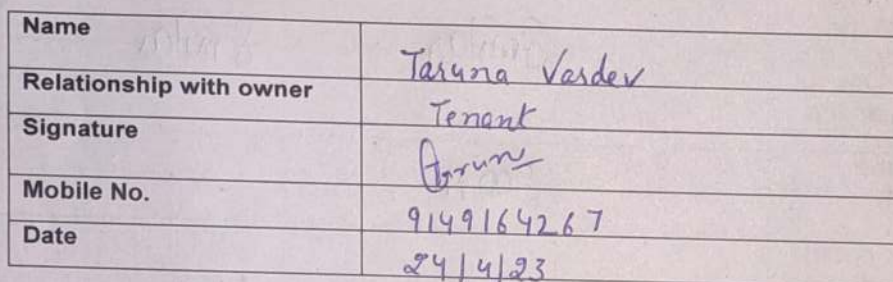 Name Taruna Vasdev
Relationship with owner Tenant
Signature
Mobile No. 9149164267
Date 24/4/23